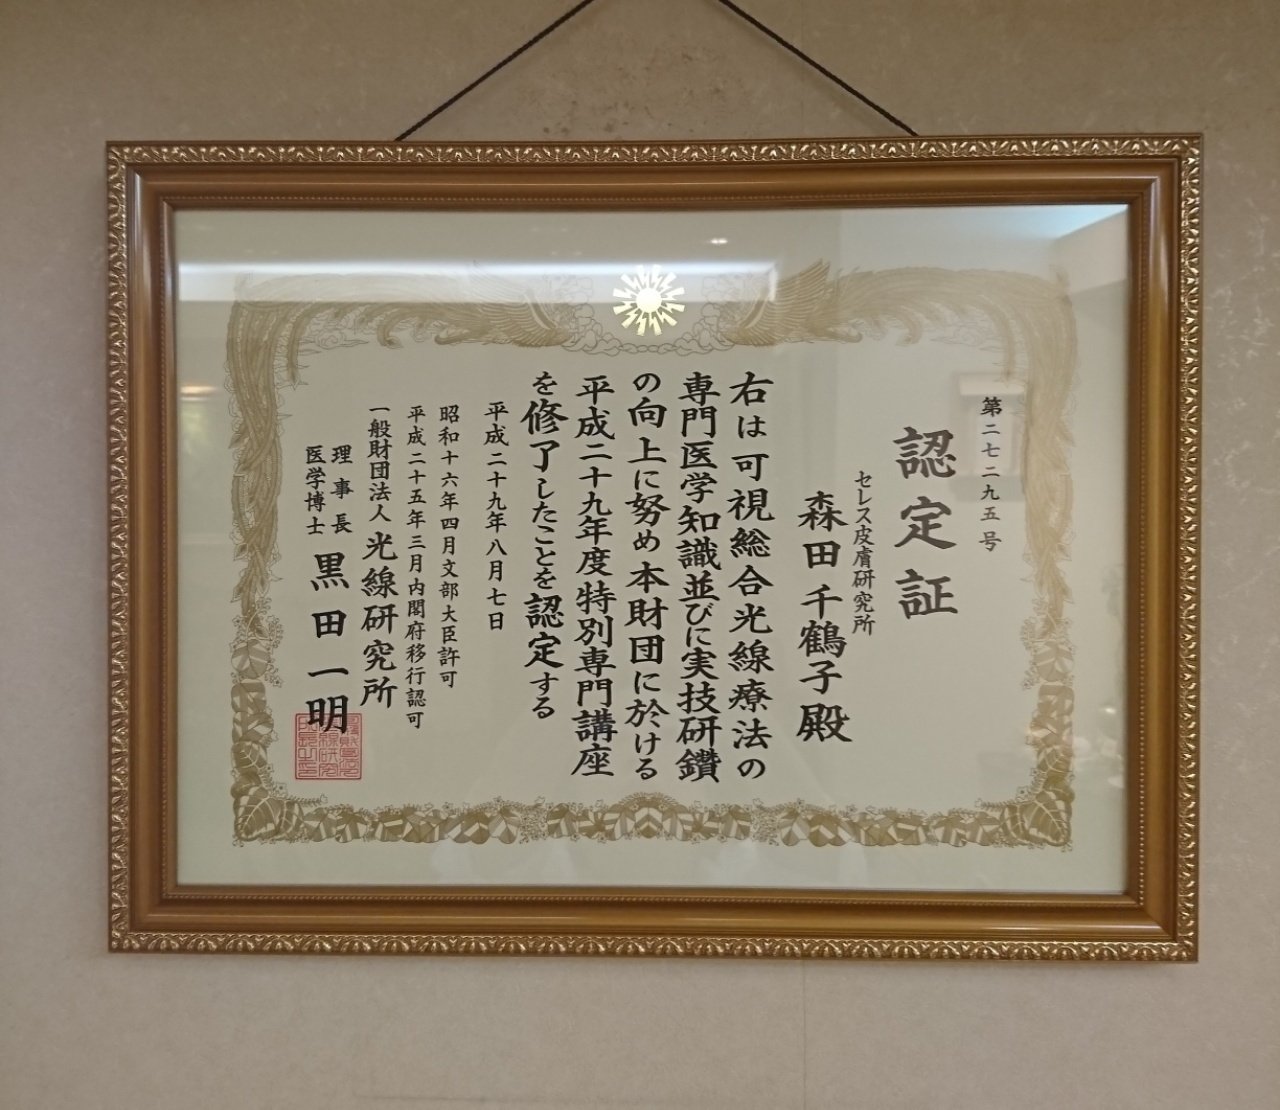 第二七二九五号
認定証
セレス皮膚研究所
森田千鶴子殿
右は可視総合光線療法の
専門医学知識並びに実技研鑽
の向上に努め本財団に於ける
平成二十九年度特別専門講座
を修了したことを認定する
平成二十九年八月七日
昭和十六年四月文部大臣許可
平成二十五年三月内閣府移行認可
一般財団法人光線研究所
理事長
医学博士
黒田一明